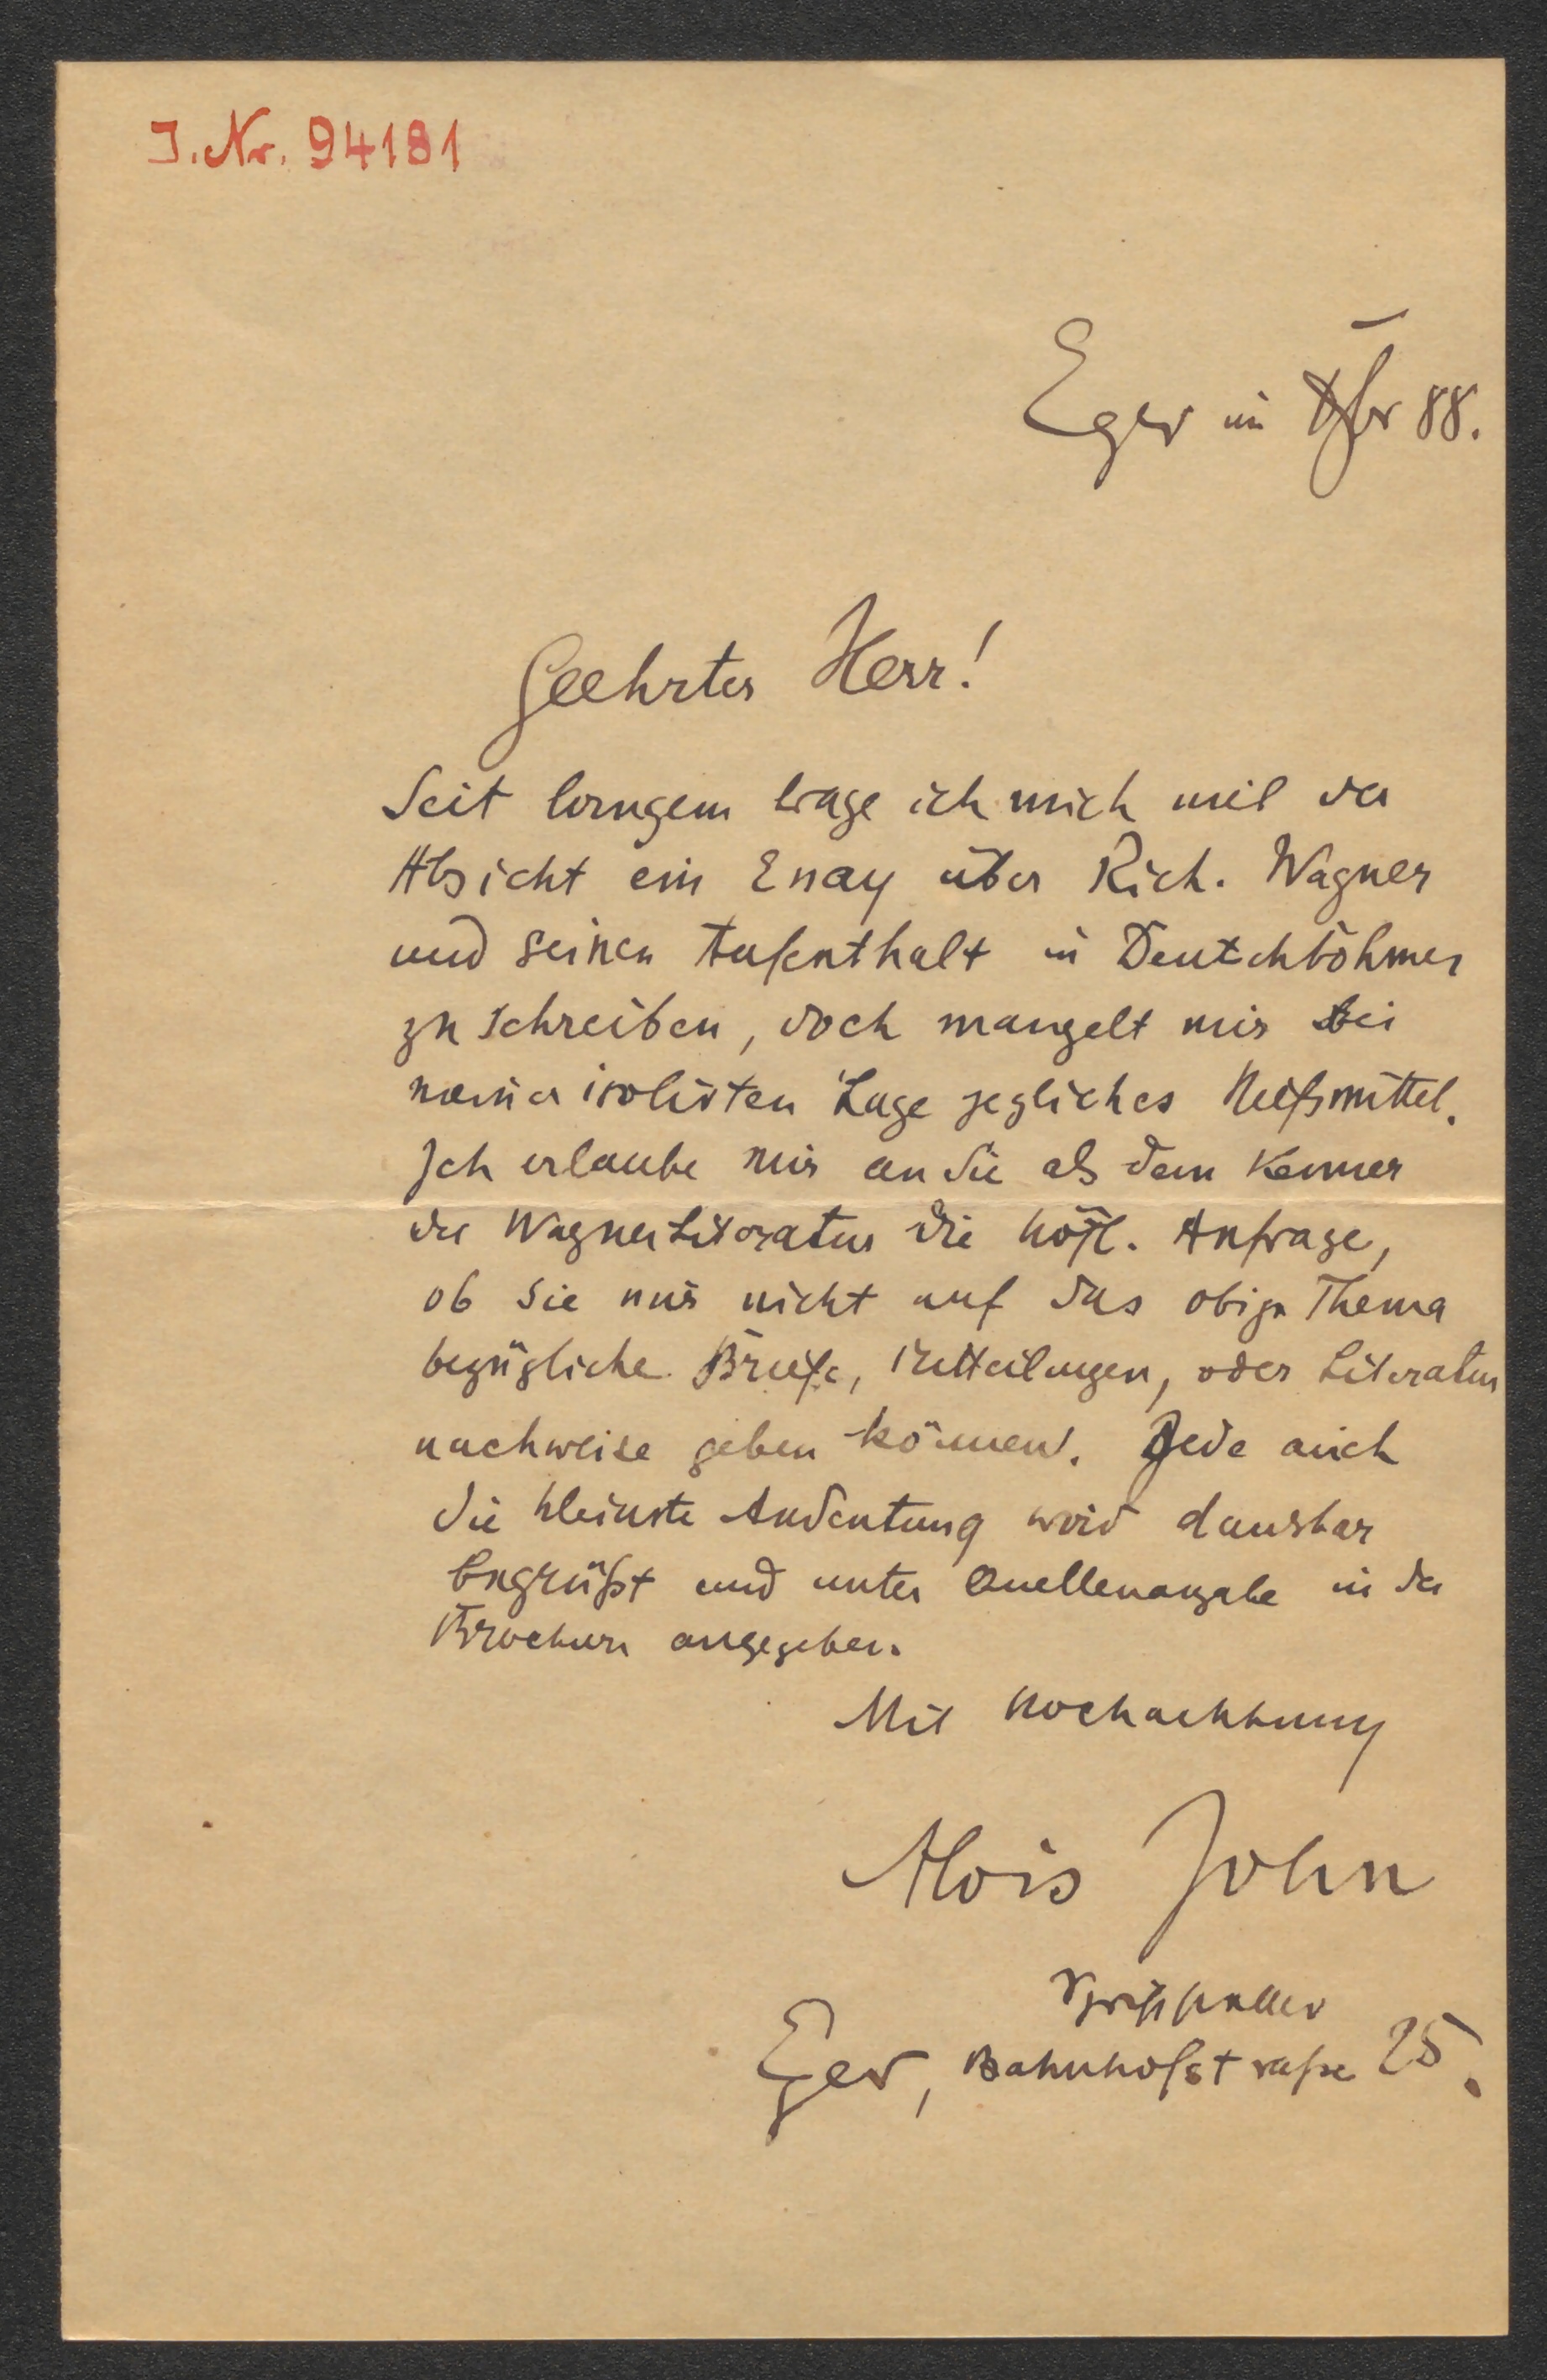 J. Nr. 94181
Eger im Xbr 88.
Geehrter Herr!
Seit langem trage ich mich mit der
Absicht ein Essay über Rich. Wagner
und seinen Aufenthalt in Deutschböhmen
zu schreiben, doch mangelt mir bei
meiner isolirten Lage jegliches Hilfsmittel.
Ich erlaube mir an Sie als dem Kenner
der Wagner Literatur die höfl. Anfrage,
ob Sie mir nicht auf das obige Thema
bezügliche Briefe, Mitteilungen, oder Literatur
nachweise geben können. Jede auch
die kleinste Andeutung wird dankbar
begrüßt und unter Quellenangabe in der
Brochure angegeben.
Mit Hochachtung
Alois John
Schriftsteller
Eger, Bahnhofstraße 25.